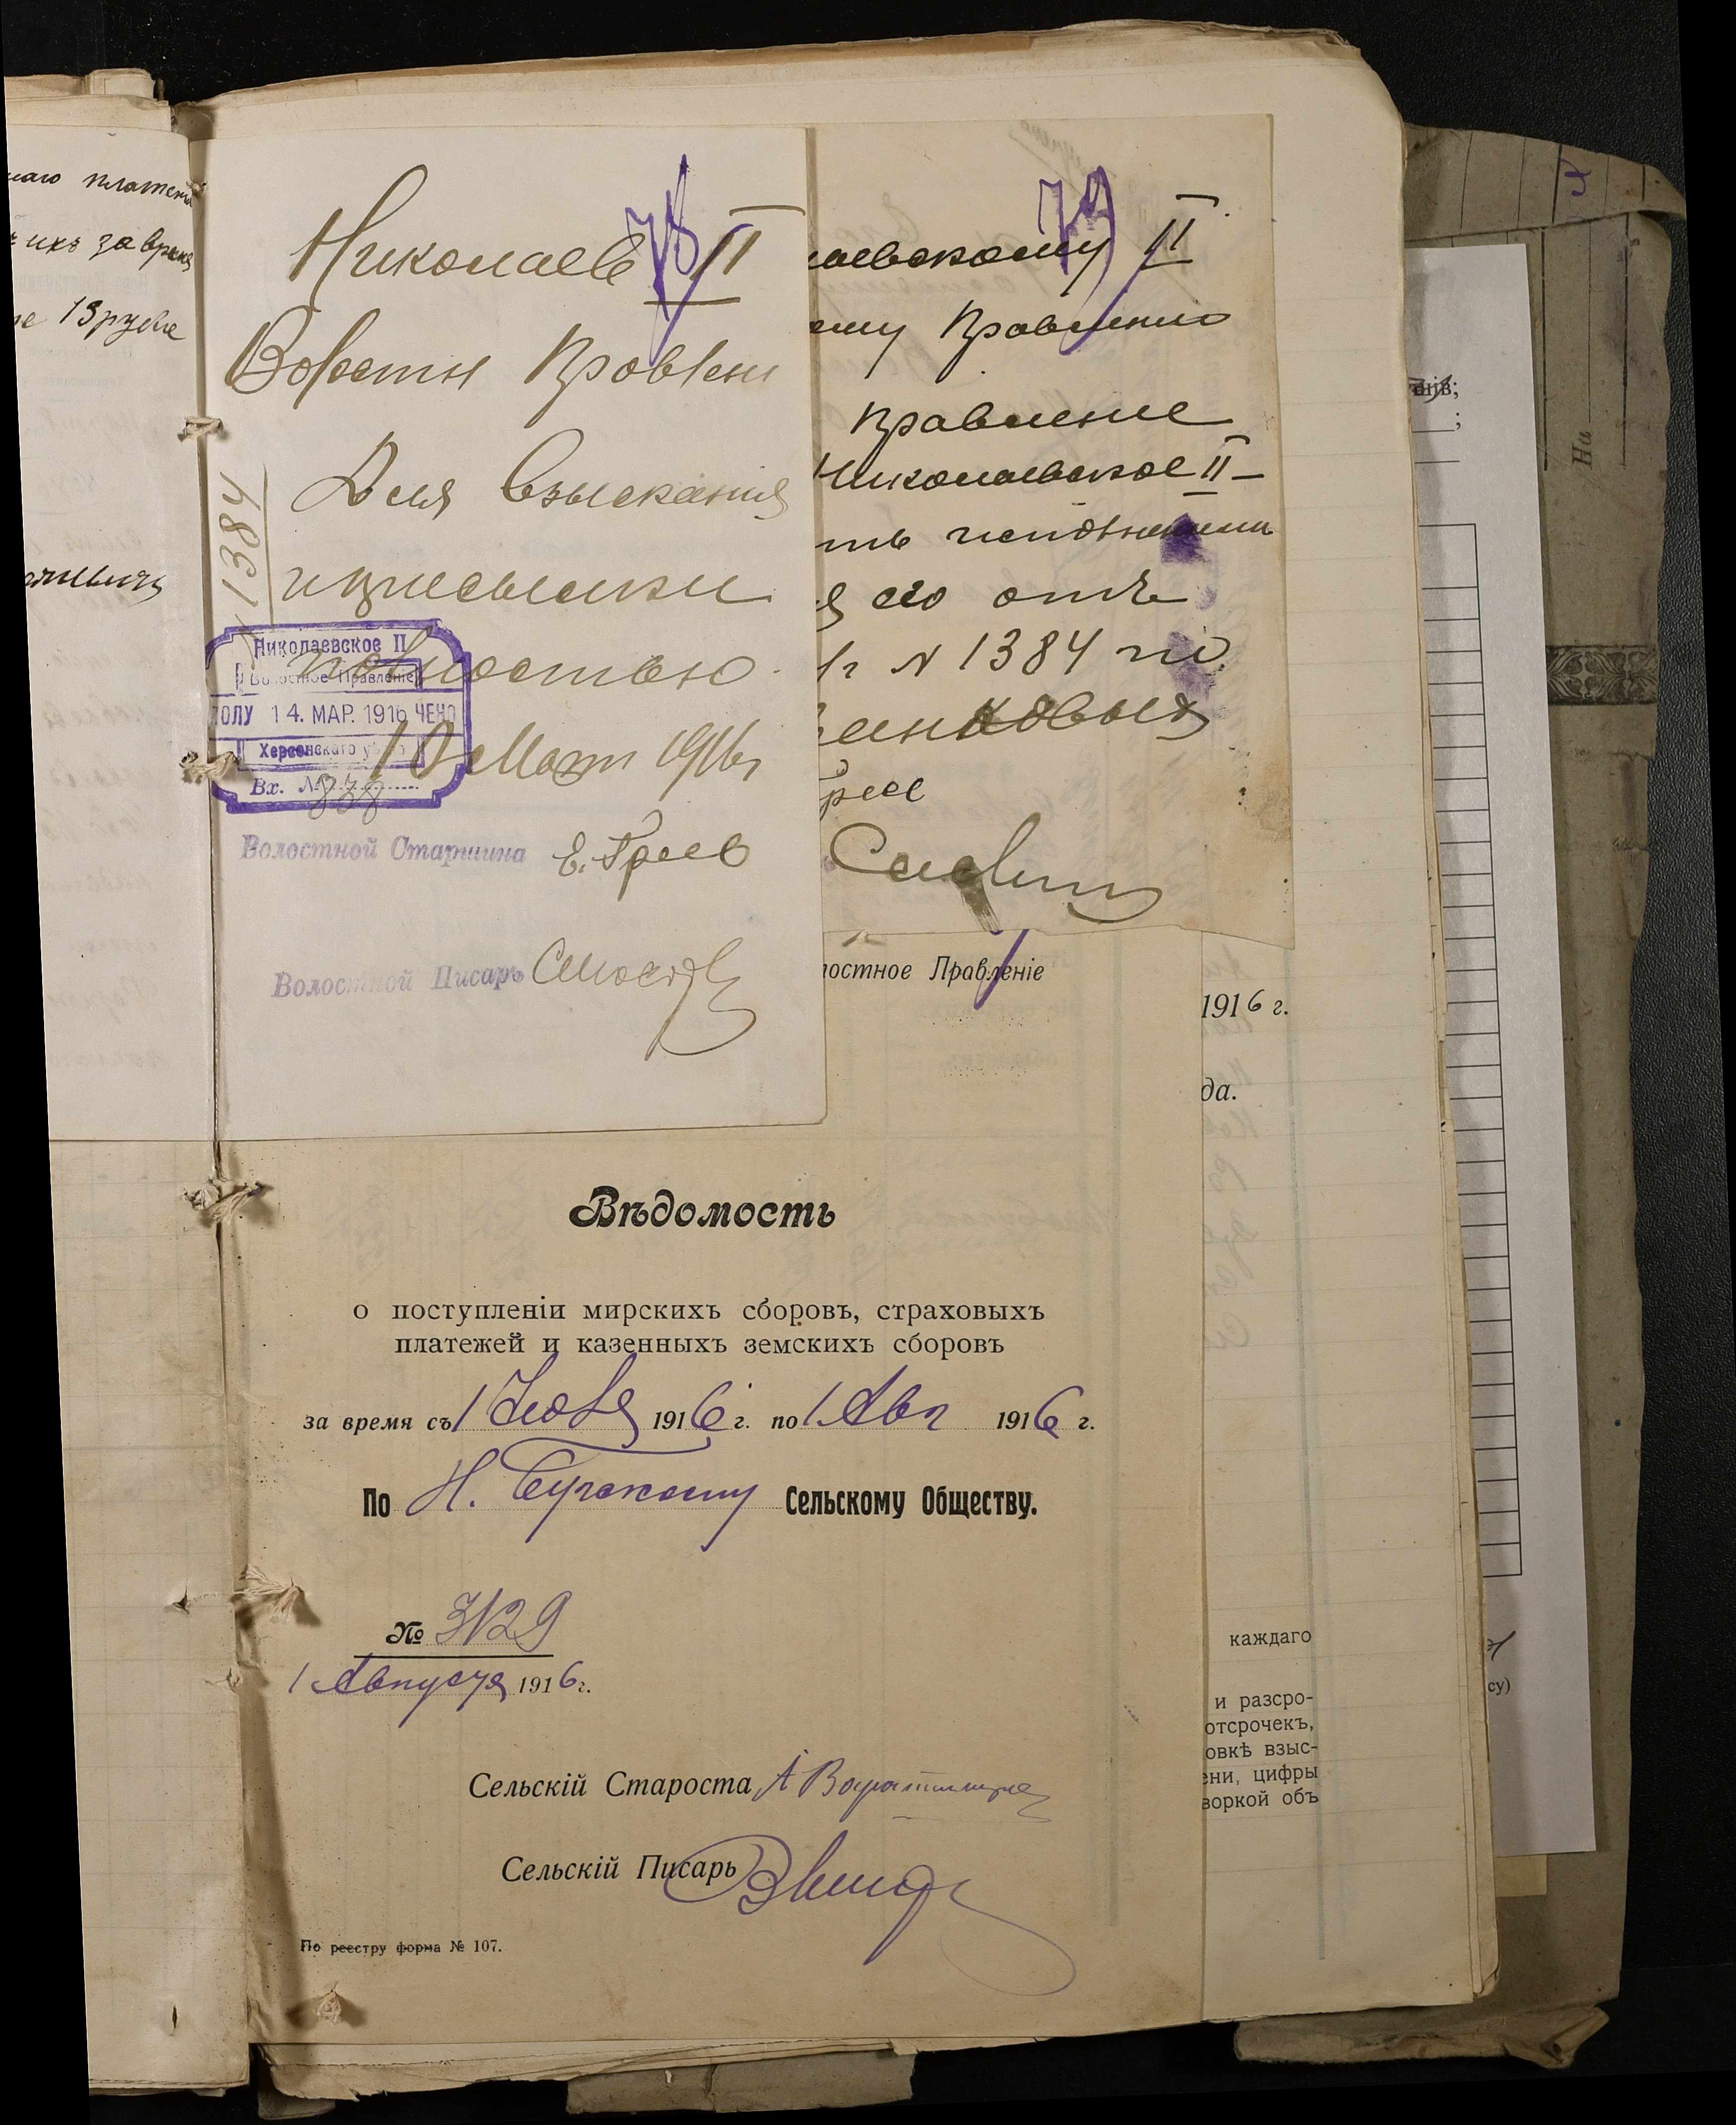 наго платеж
ихъ за время
13 рубле
78
Николаев II
Волостн Правлени
Для взыскания
и присылки
полностью.
№ 1384
Николаевское II
Волостное Правленіе
ПОЛУ 14. МАР. 1916 ЧЕНО
Херсонскаго уѣзда
Вх. № 838
10 Март 1916 г
Волостной Старшина Е. Греев
Волостной Писарь
79
лаевскому II
ому Правлению
Правление
Николаевское II-
ть исполнением
его отъ
г № 1384 по
Слав
остное Правленіе
1916 г.
да.
Вѣдомость
о поступленіи мирскихъ сборовъ, страховыхъ
платежей и казенныхъ земскихъ сборовъ
за время съ 1 Июля 1916 г. по 1 Авг 1916 г.
По Н. Бугскому Сельскому Обществу.
№ 3129
1 Августа 1916 г.
Сельскій Староста А
Сельскій Писарь
По реестру форма № 107.
каждаго
и разсро-
отсрочекъ,
овкѣ взыс-
ени, цифры
воркой объ
су)
На